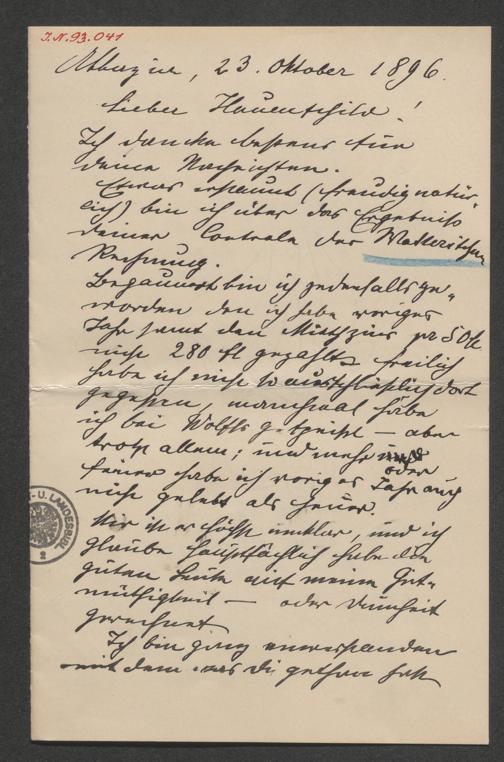 I.N. 93.041
Abbazia, 23. Oktober 1896.
Lieber Hauenschild!
Ich danke bestens für
deine Nachrichten.
Etwas erstaunt (freudig natür-
lich) bin ich über das Ergebniß
deiner Controle der
Rechnung.
Begaunert bin ich jedenfalls ge-
worden den ich habe voriges
Jahr samt den Mietzins pr
nicht 280 fl gezahlt freilich
habe ich nicht so ausschließlich dort
gegessen, manchmal habe
ich bei Wolffs gespeist — aber
trotz allem; und mehr oder
feiner habe ich voriges Jahr auch
nicht gelebt als heuer.
Mir ist es höchst unklar, und ich
glaube hauptsächlich habe die
guten Leute auf meine Gut-
müthigkeit — oder Dumheit
gerechnet
Ich bin ganz einverstanden
mit dem was du gethan hast
U. LANDESBIBL.
2